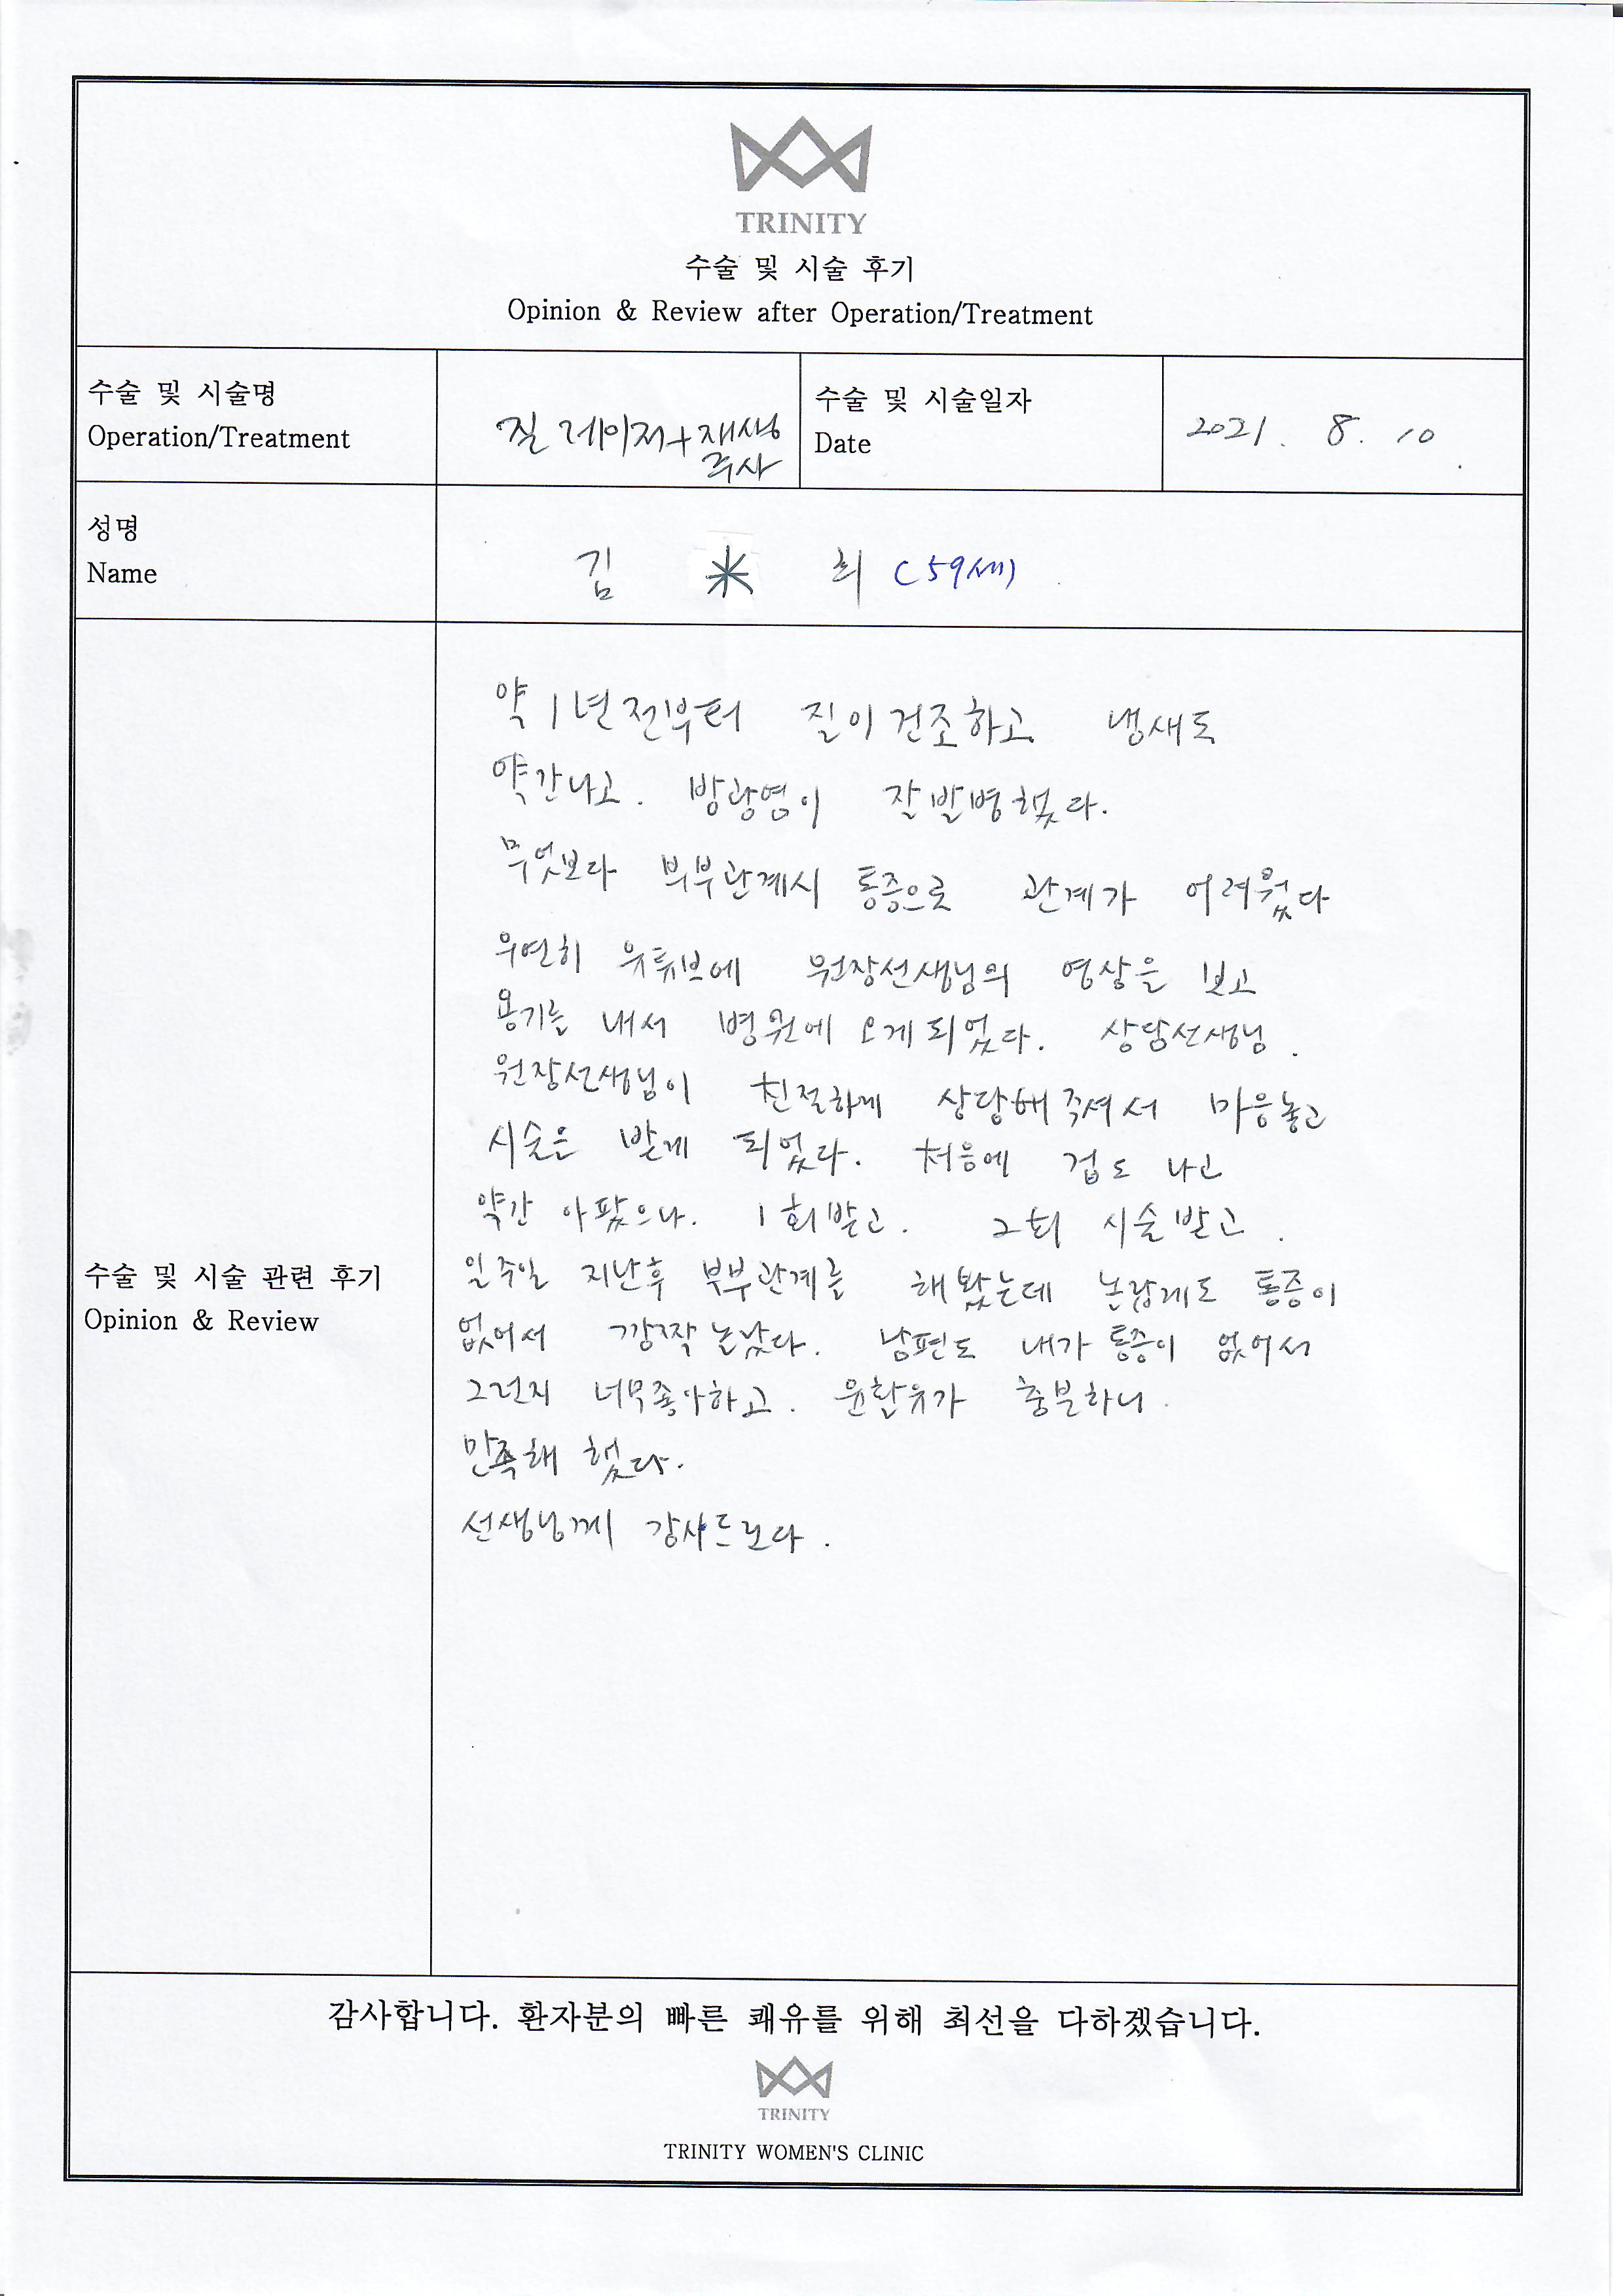 TRINITY
수술 및 시술 후기
Opinion & Review after Operation/Treatment
수술 및 시술명
Operation/Treatment
질 레이저+재생
주사
수술 및 시술일자
Date
2021. 8. 10.
성명
Name
김 * 희 (59세)
약 1년전부터 질이건조하고 냄새도
약간나고. 방광염이 잘발병했다.
무엇보다 부부관계시 통증으로 관계가 어려웠다
우연히 유튜브에 원장선생님의 영상을 보고
용기를 내서 병원에 오게되었다. 상담선생님.
원장선생님이 친절하게 상담해주셔서 마음놓고
시술은 받게 되었다. 처음에 겁도 나고
약간 아팠으나. 1회받고. 2회 시술받고.
일주일 지난후 부부관계를 해봤는데 놀랍게도 통증이
없어서 깜짝놀났다. 남편도 내가 통증이 없어서
그런지 너무좋아하고. 윤활유가 충분하니.
만족해 했다.
선생님께 감사드린다.
수술 및 시술 관련 후기
Opinion & Review
감사합니다. 환자분의 빠른 쾌유를 위해 최선을 다하겠습니다.
TRINITY
TRINITY WOMEN'S CLINIC